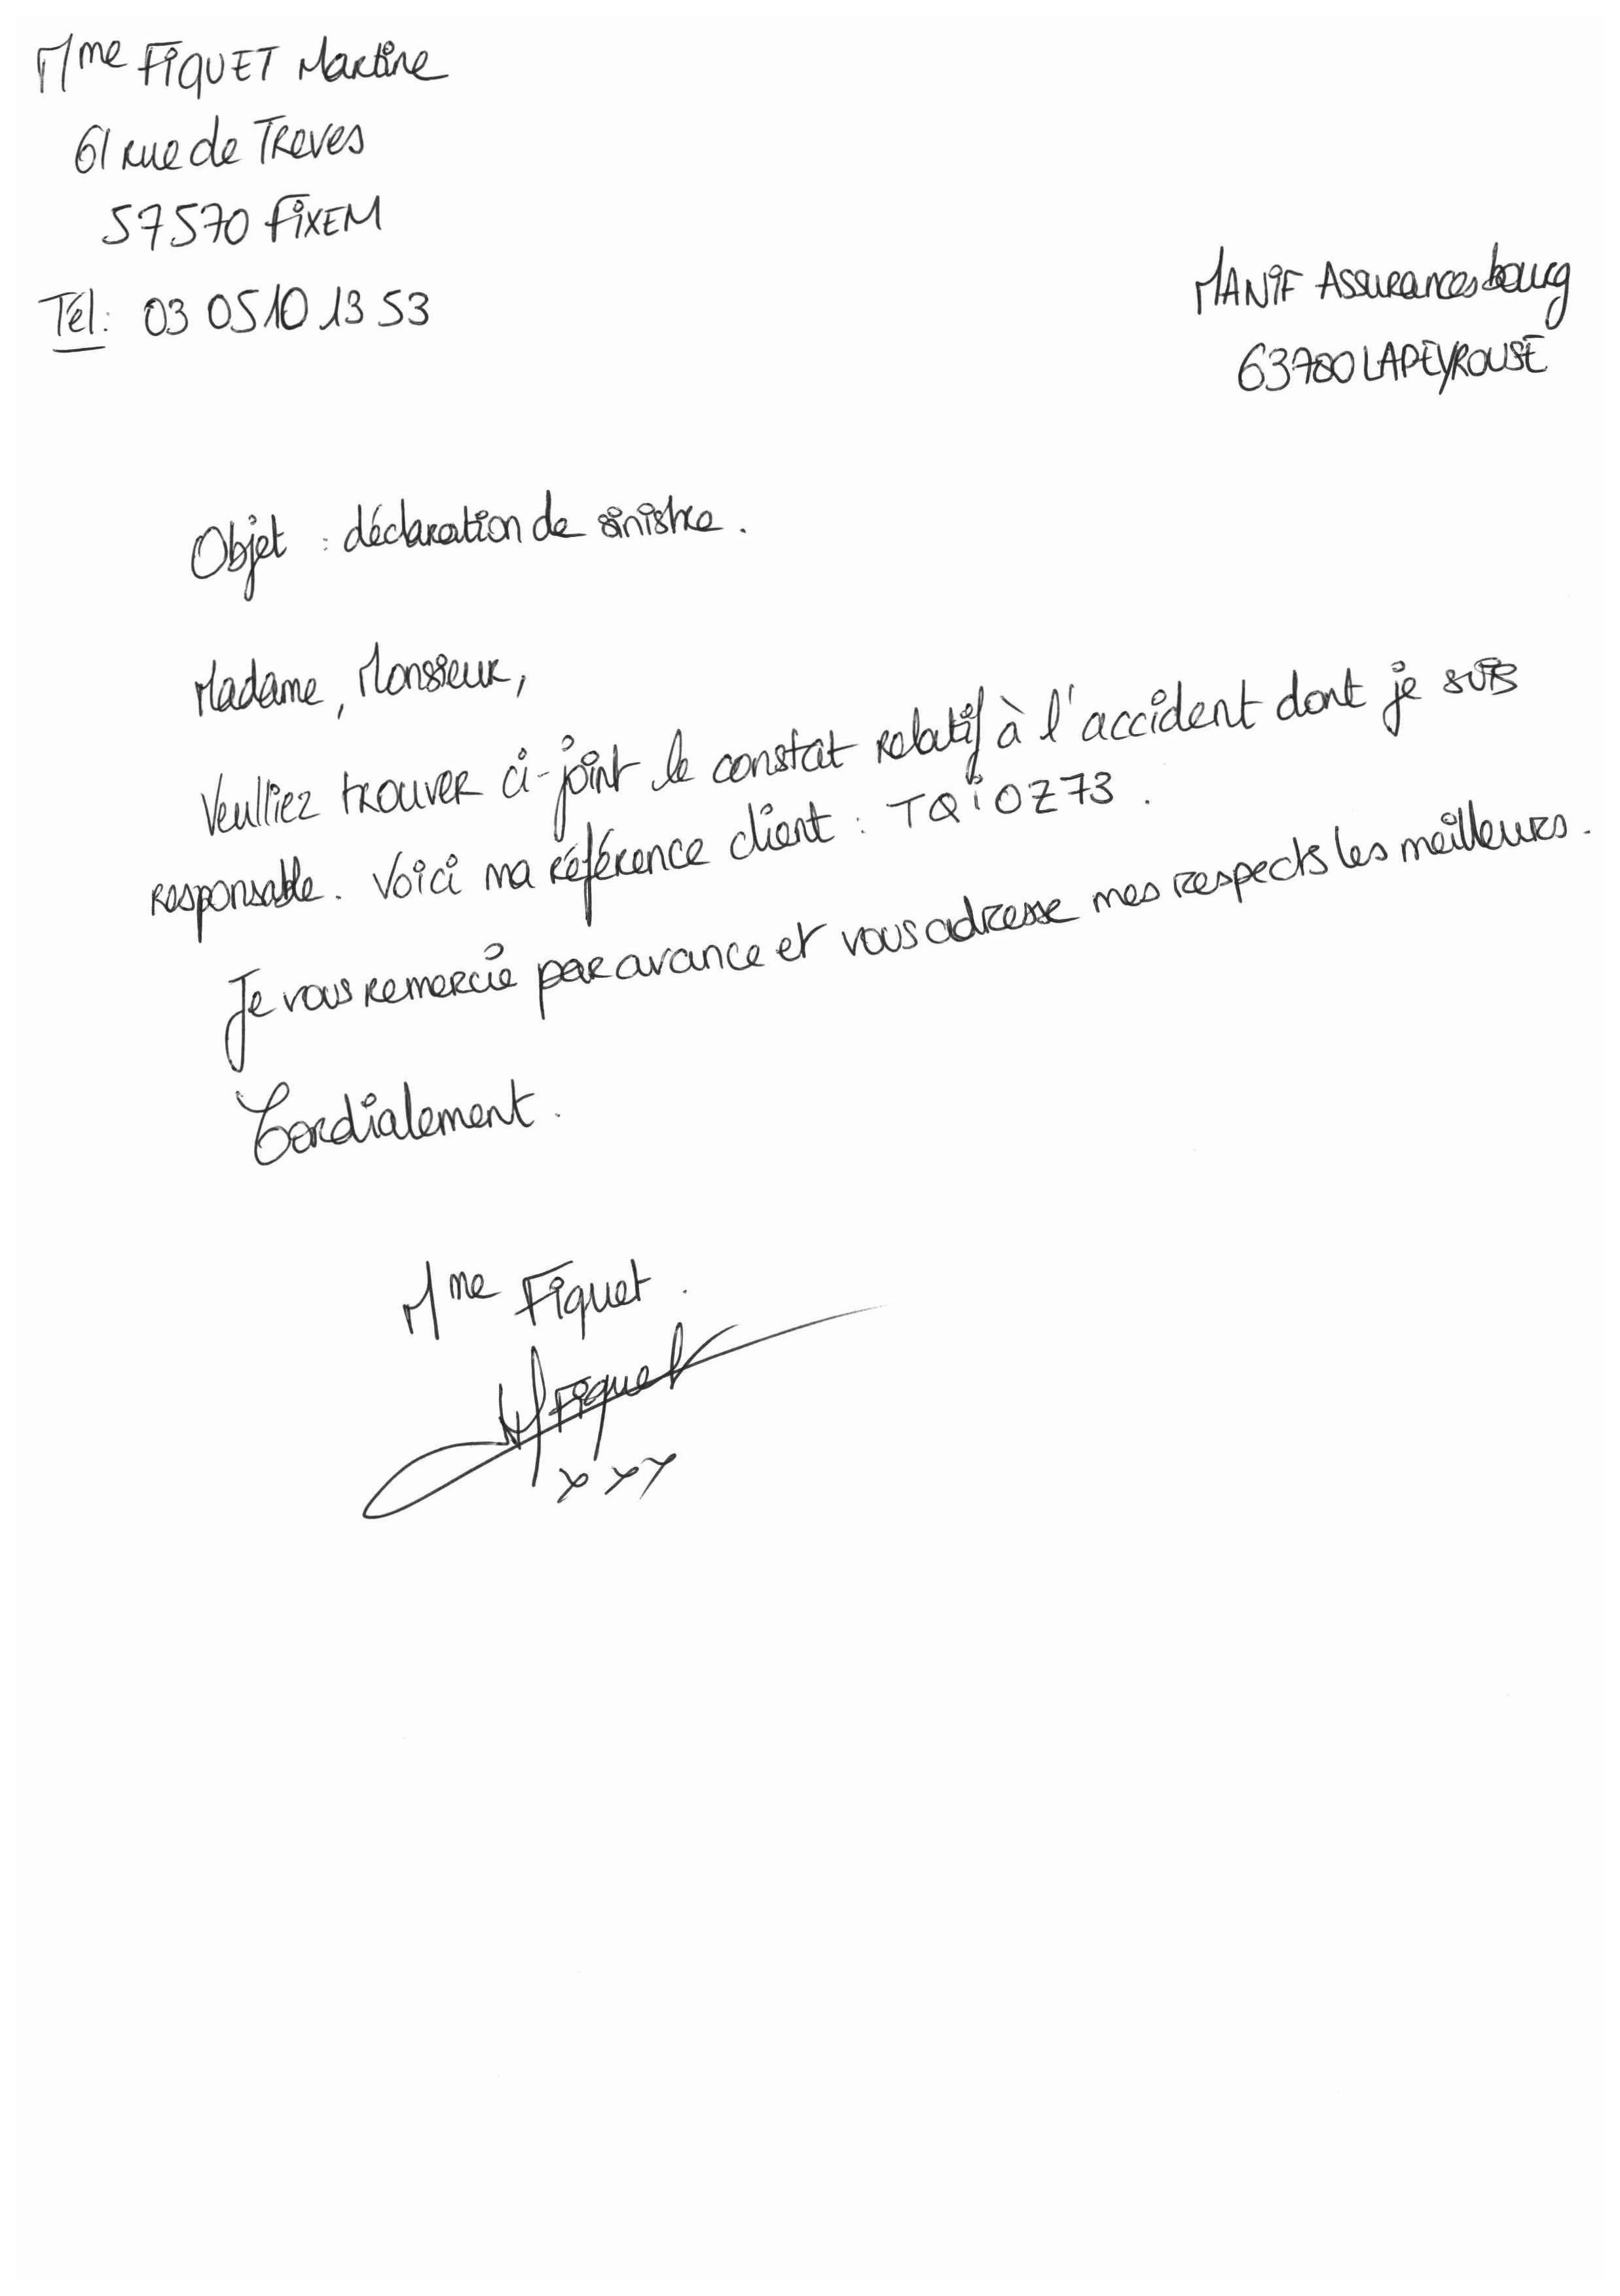 Mme FIQUET Martine
61 rue de Treves
57570 FIXEM
Tél: 03 05 10 13 53
MANIF Assurances bourg
63700 LAPEYROUSE
Objet : déclaration de sinistre.
Madame, Monsieur,
Veulliez trouver ci-joint le constat relatif à l'accident dont je suis
responsable. Voici ma référence client : TQIOZ73.
Je vous remercie par avance et vous adresse mes respects les meilleurs.
Cordialement.
Mme Fiquet.
MFiquet